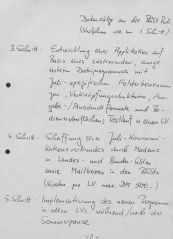 Datensätze an die BüSt Parl
(Verfahren wie im 1. Schritt)
3. Schritt: Entwicklung einer Applikation auf
Basis eines existierenden, ausge-
testeten Dateiprogramms mit
Juli-spezifischen Felderbenennun-
gen, Verknüpfungsstrukturen, Ein-
gabe-/Ausdruckformate und Be-
dieneroberfläche; Testlauf in einem LV
4. Schritt: Schaffung einer Juli-Kommuni-
kationsverbundes durch Modems
in Landes- und Bundes-GSten
sowie Mailboxen in den
(Kosten pro LV max DM 500.-)
5. Schritt: Implementierung des neuen Programms
in allen LVs während/nach der
Sommerpause
- 2 -